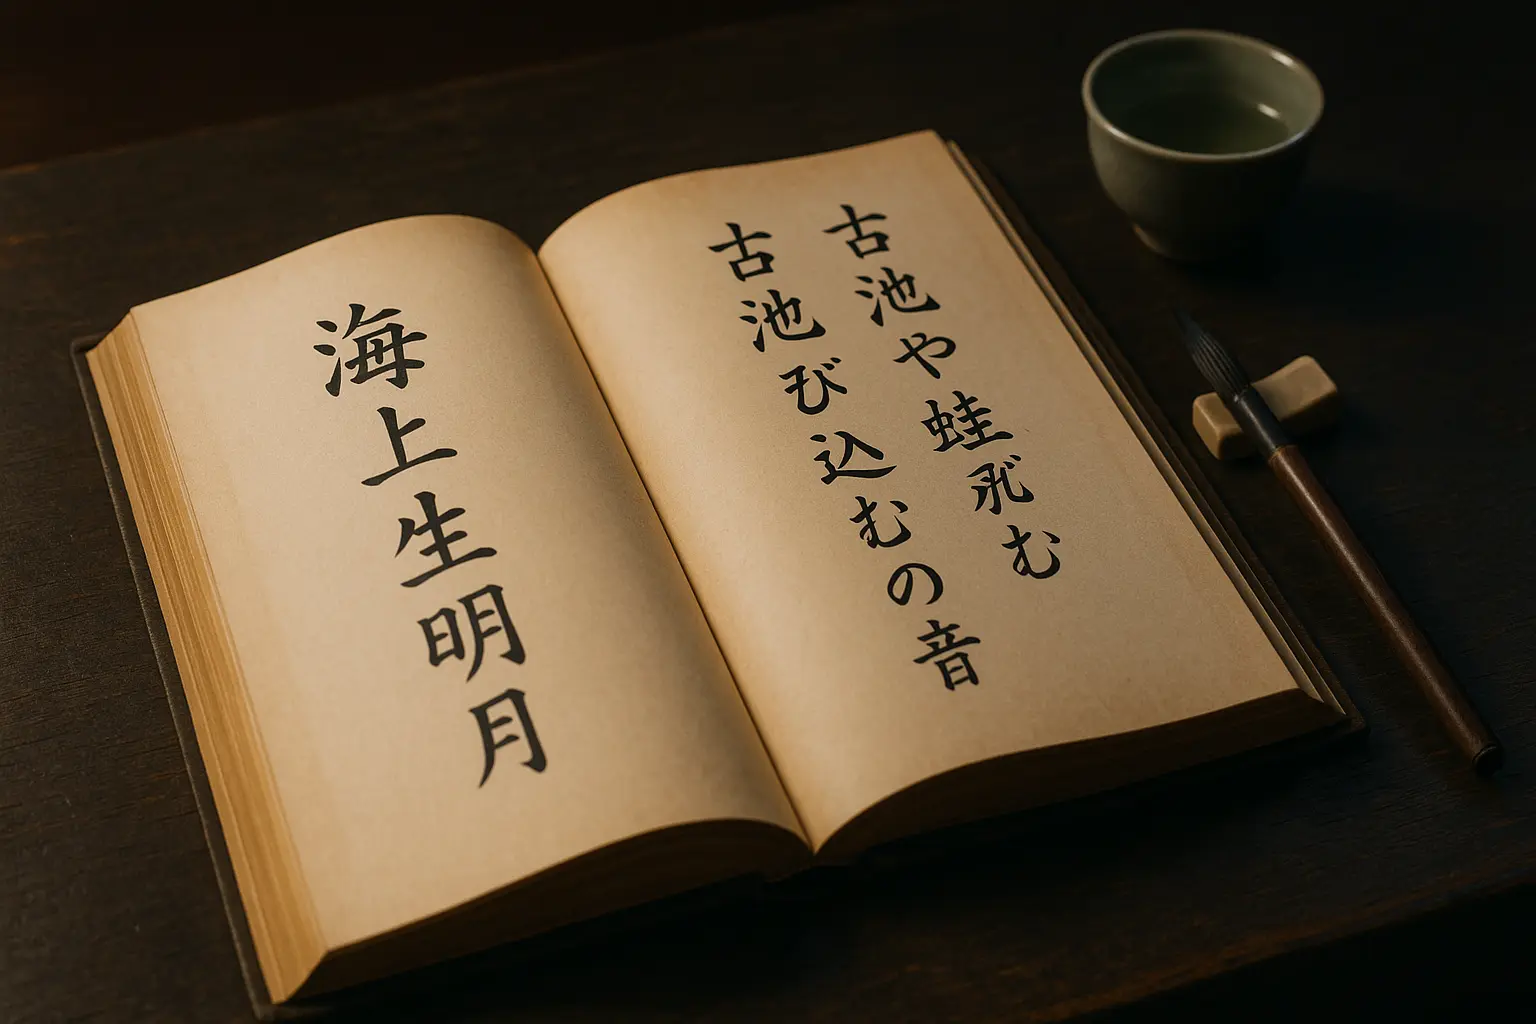 古池や蛙む
古池び込むの音
海上生明月